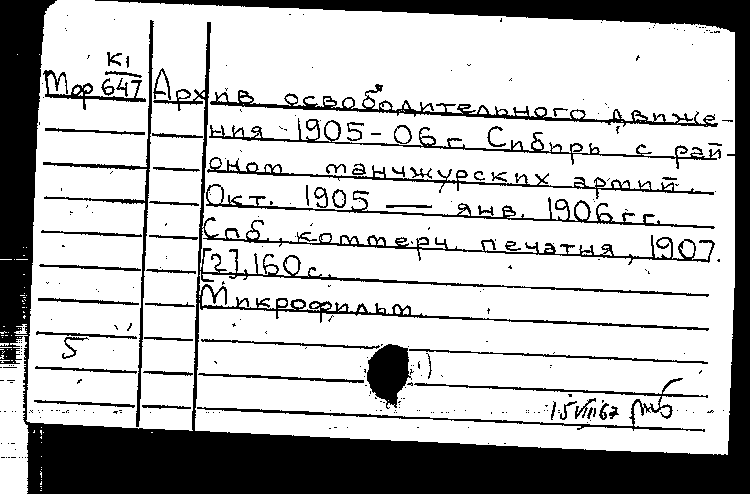 К1
Мф 647 Архив освободительного движе-
ния 1905-06 г. Сибирь с рай-
оном манчжурских армий.
Окт. 1905 — янв. 1906 гг.
Спб., коммерч. печатня, 1907.
[2], 160 с.
Микрофильм.
5
15 VIII 62